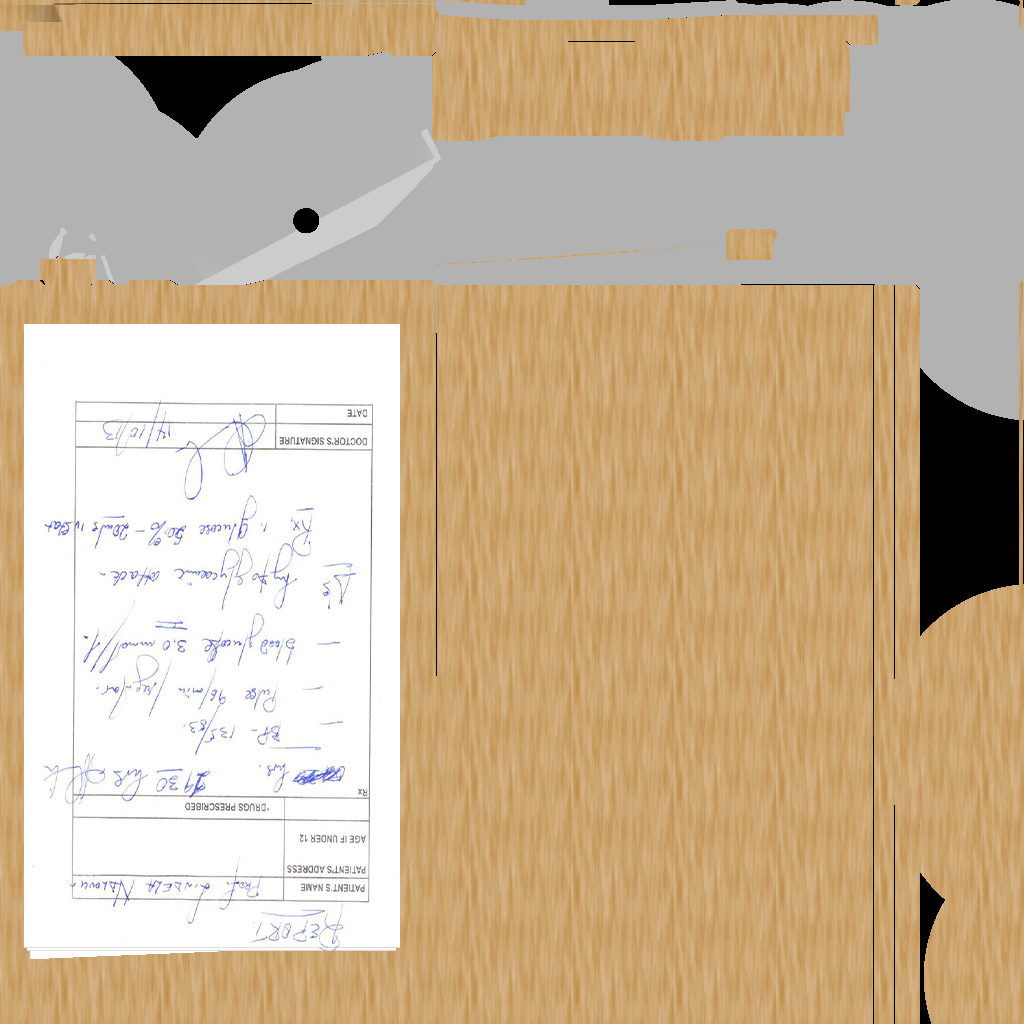 REPORT.
PATIENT'S NAME Prof. LINDELA Ndlovu
PATIENT'S ADDRESS
AGE IF UNDER 12
*DRUGS PRESCRIBED
Rx
hrs. 1430 hrs
— BP - 135/83.
— Pulse 96/min / regular.
— blood glucose 3.0 mmol/l.
Δs hypoglycaemic attack -
Rx 1. glucose 50% - 20mls iv stat
DOCTOR'S SIGNATURE 14/10/13
DATE